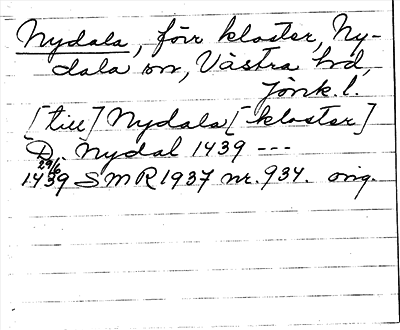 Nydala, förr kloster, Ny-
dala sn, Västra hd,
Jönk. l.
[till] Nydala [kloster]
D. Nydal 1439 ---
29/6
1439 SMR 1937 nr. 934. orig.